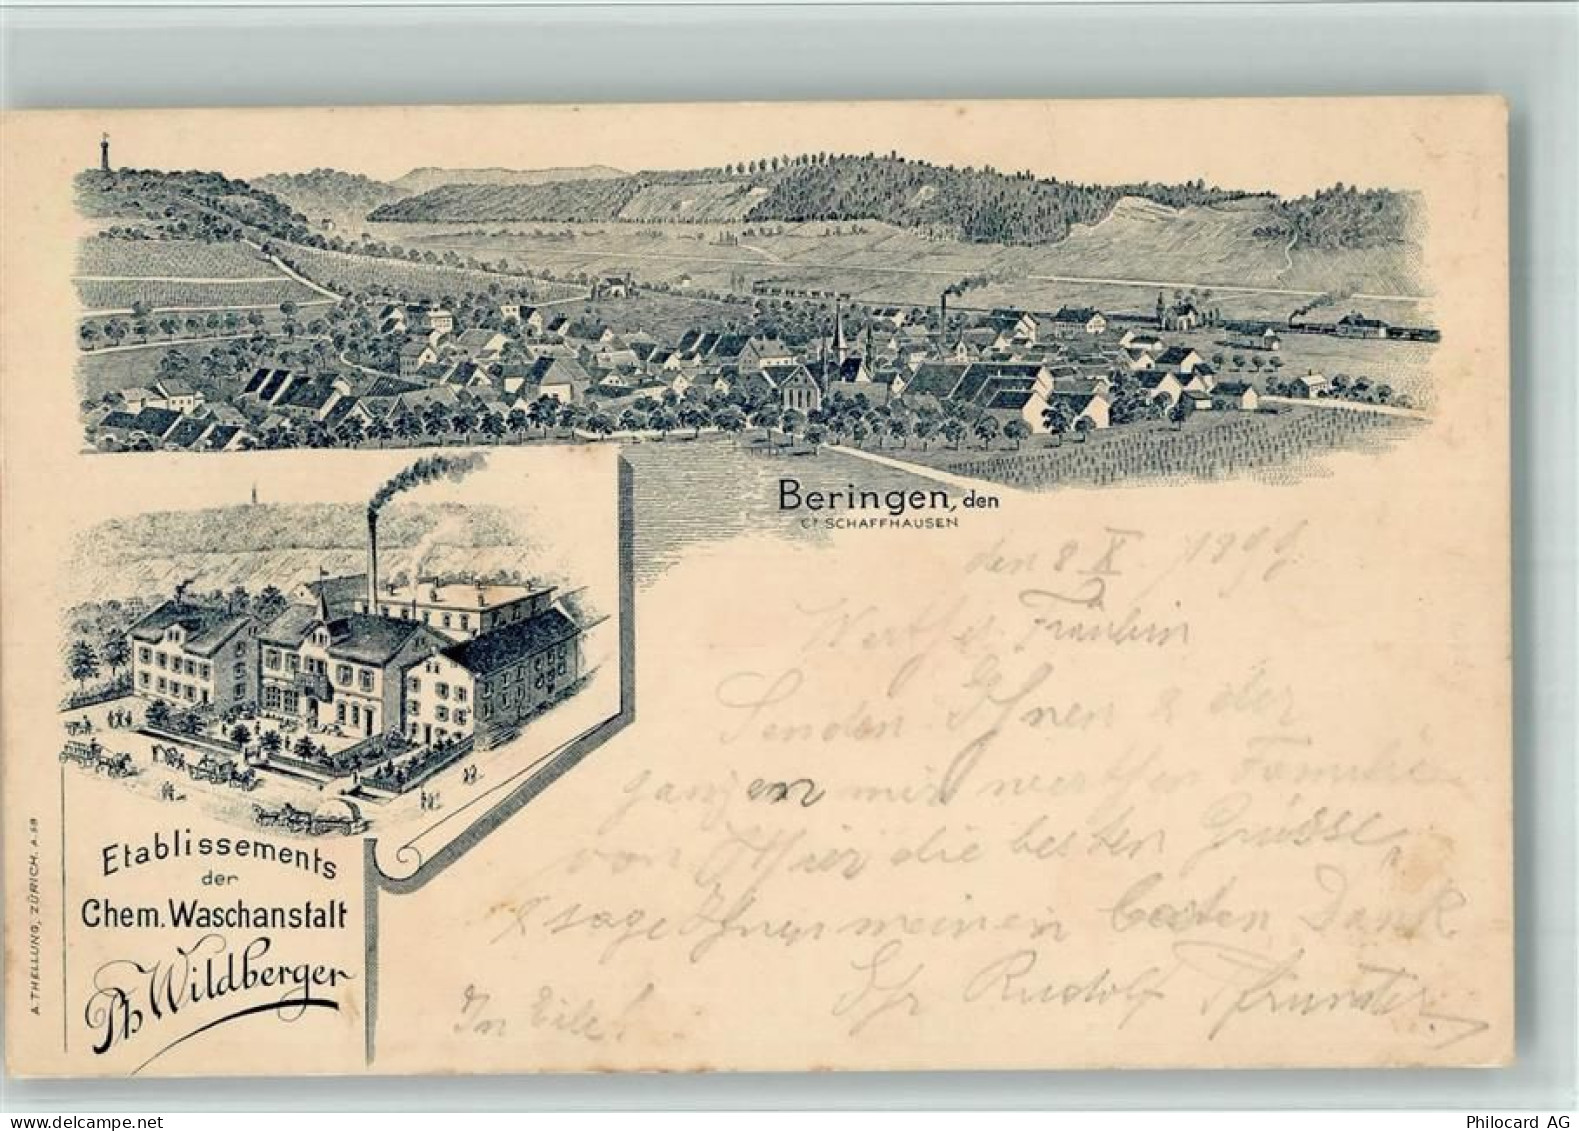 Beringen, den
Ct SCHAFFHAUSEN
den 8 X 1899
Werthes Fräulein
Senden Ihnen & der
ganzen mir werthen Familie
von Hier die besten Grüsse,
& sage Ihnen meinen besten Dank
Ihr Rudolf
In Eile!
Etablissements
der
Chem. Waschanstalt
Ph Wildberger
A. THELLUNG, ZÜRICH. A. 59
delcampe.net
Philocard AG